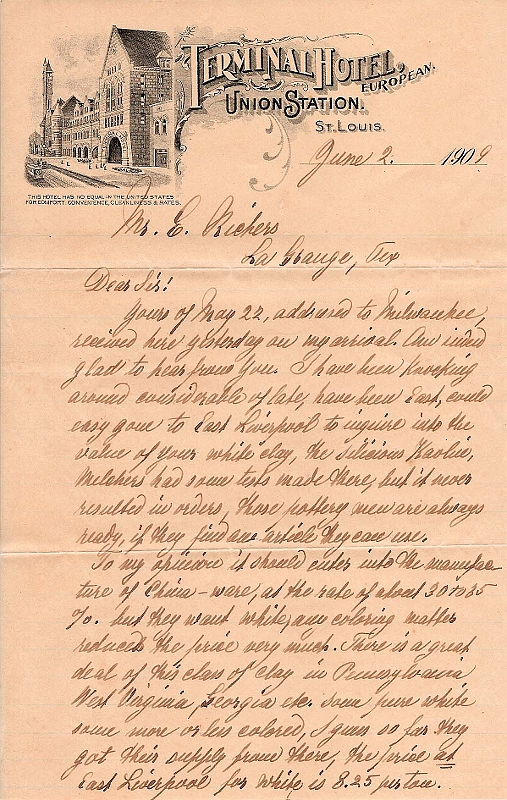 TERMINAL HOTEL,
EUROPEAN.
UNION STATION.
ST. LOUIS.
June 2. 1909
THIS HOTEL HAS NO EQUAL IN THE UNITED STATES
FOR COMFORT, CONVENIENCE, CLEANLINESS & RATES.
Mr. E. Richers
La Grange, Tex
Dear Sir!
Yours of May 22, addressed to Milwaukee,
received here yesterday on my arrival. Am indeed
glad to hear from you. I have been knocking
around considerable of late, have been East, could
easy gone to East Liverpool to inquire into the
value of your white clay, the Silicious Kaolin,
Melchers had some tests made there, but it never
resulted in orders, those pottery men are always
ready, if they find an article they can use.
To my opinion it should enter into the manufac-
ture of China-ware, at the rate of about 30 to 35
%. but they want white, any coloring matter
reduces the price very much. There is a great
deal of this class of clay in Pennsylvania
West Virginia, Georgia etc. some pure white
some more or less colored, I guess so far they
got their supply from there, the price at
East Liverpool for white is 8.25 per ton.